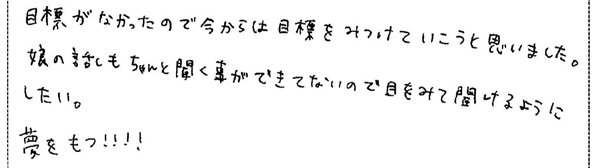 目標がなかったので今からは目標をみつけていこうと思いました。
娘の話しもちゃんと聞く事ができてないので目をみて聞けるように
したい。
夢をもつ!!!!